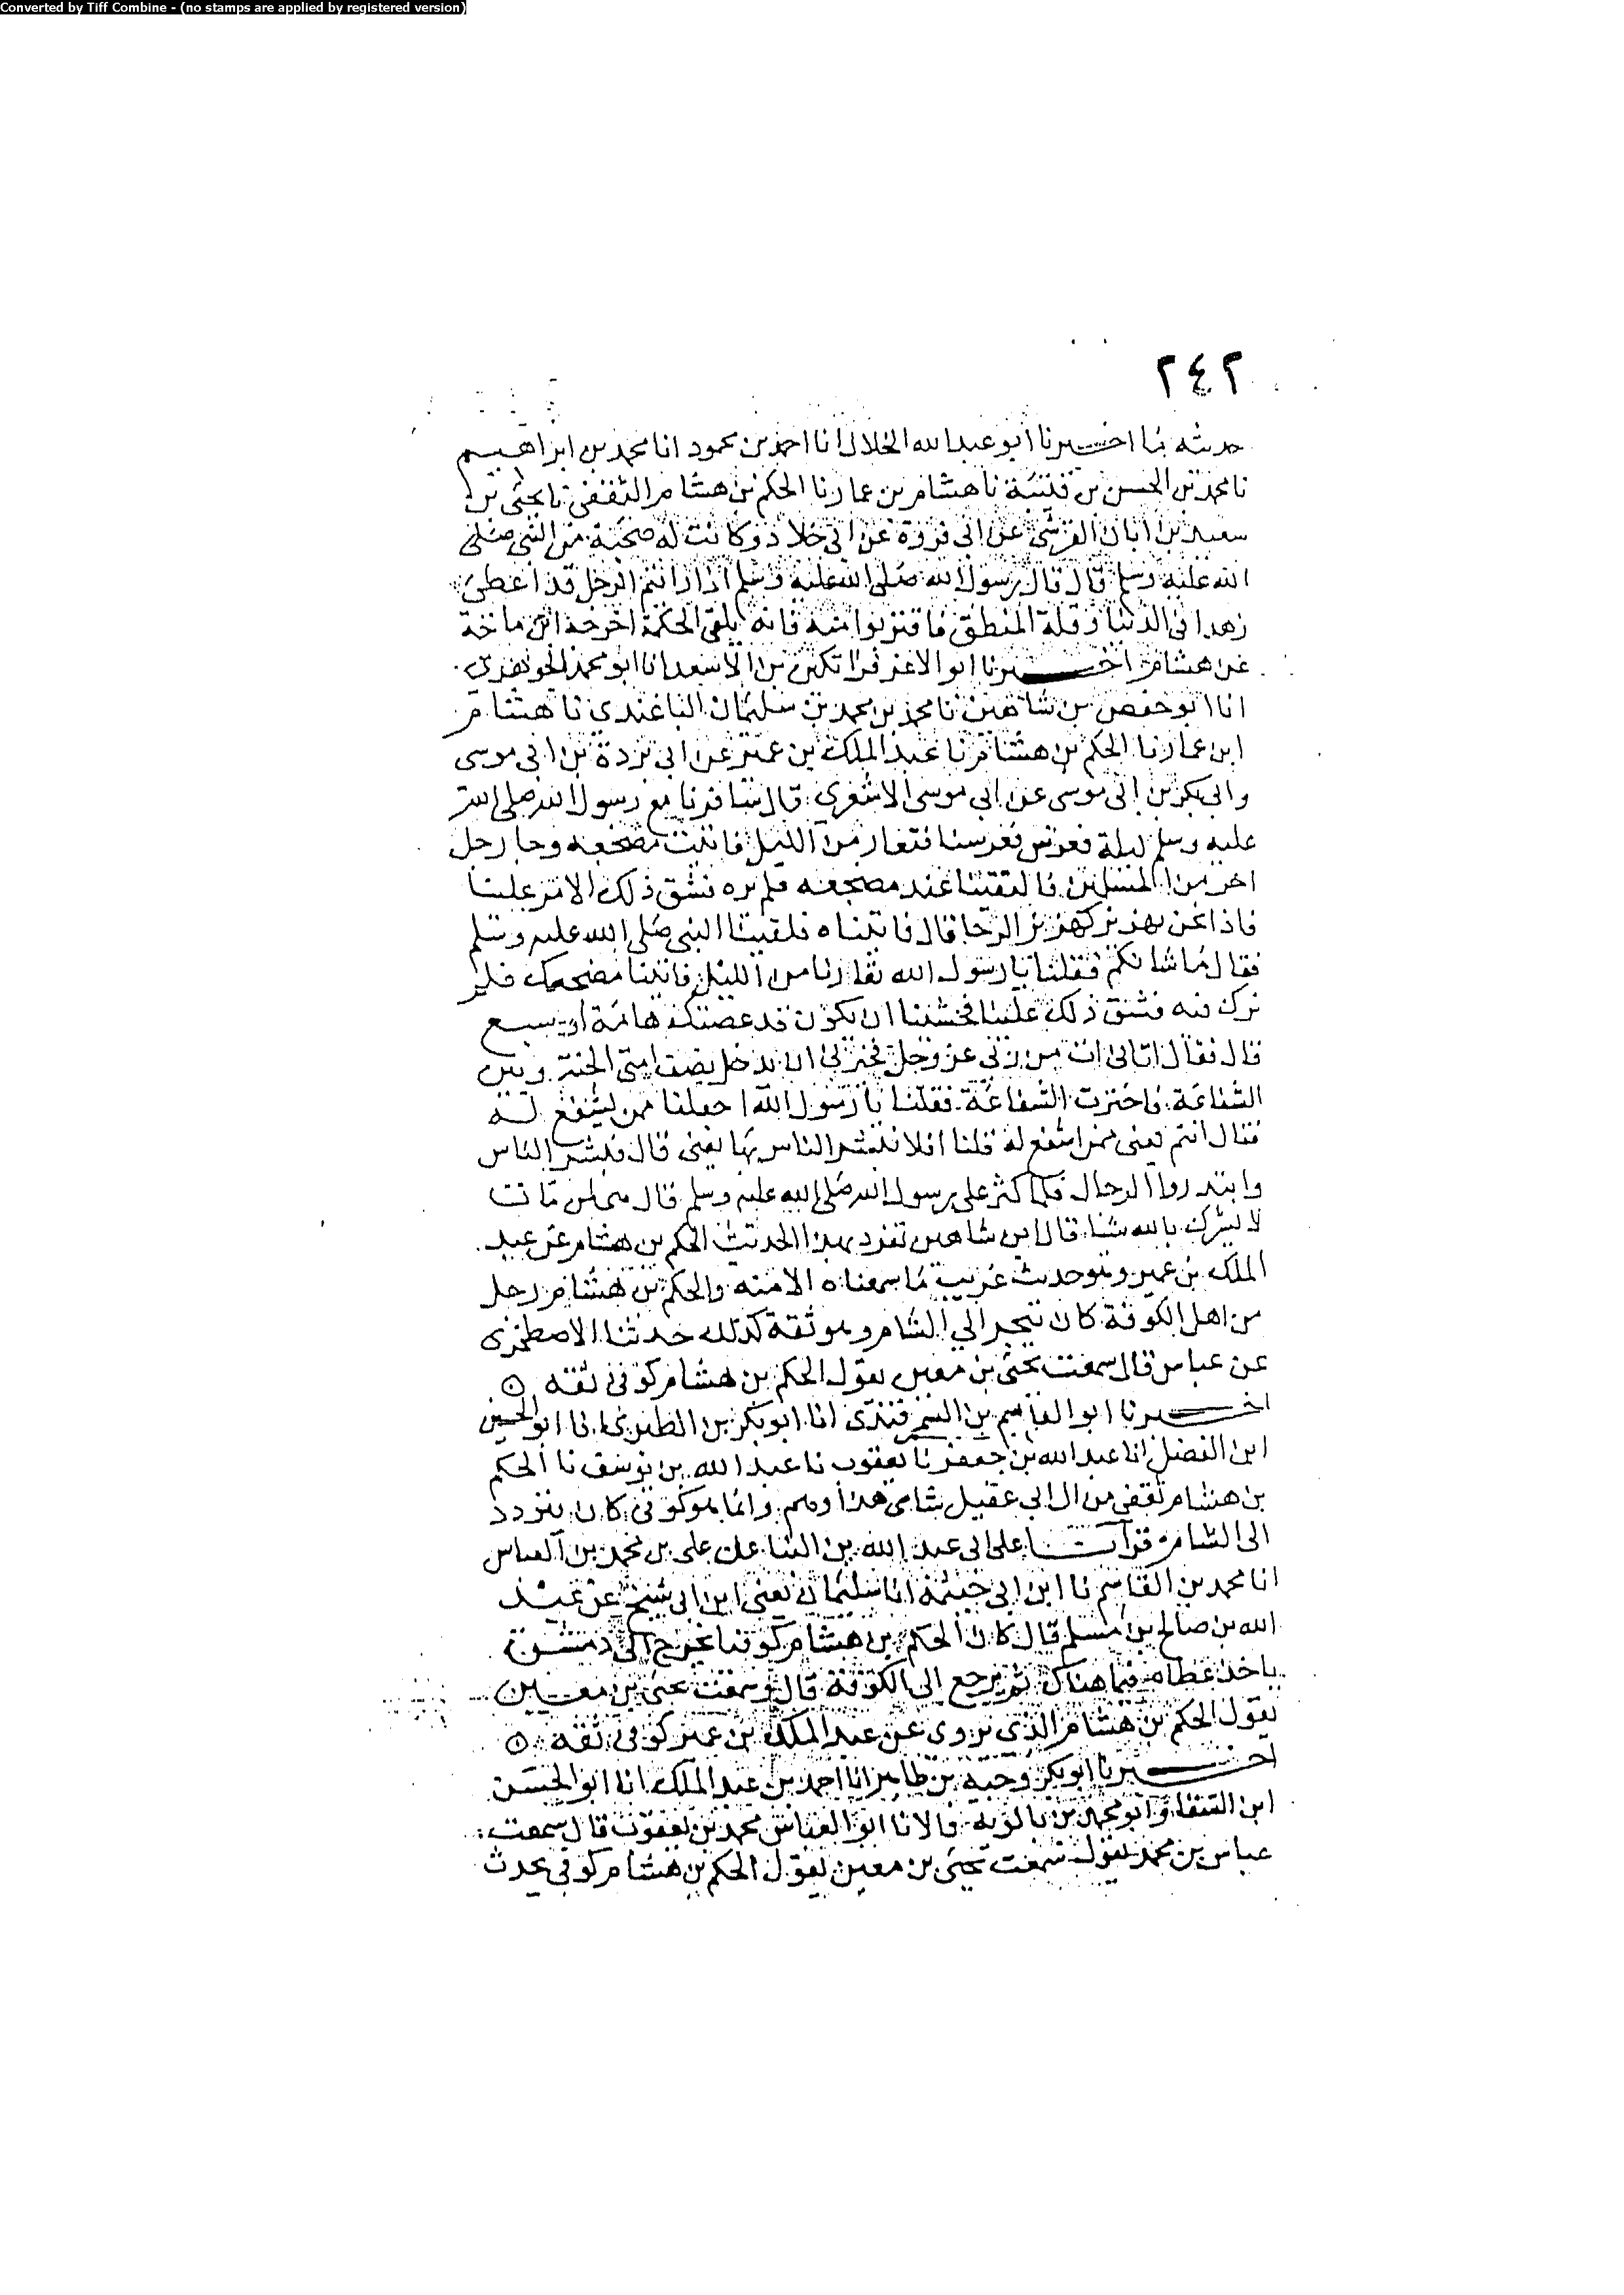 Converted by Tiff Combine - (no stamps are applied by registered version)
٢٤٢
حديثه ما اخبرنا ابو عبد الله الخلال انا احمد بن محمود انا محمد بن ابراهيم
نا محمد بن الحسن بن قتيبة نا هشام بن عمار نا الحكم بن هشام الثقفي نا يحيى بن
سعيد بن ابان القرشي عن ابي فروة عن ابي خلاد وكانت له صحبة من النبي صلى
الله عليه وسلم قال قال رسول الله صلى الله عليه وسلم اذا رأيتم الرجل قد اعطي
زهدا في الدنيا وقلة المنطق فاقتربوا منه فانه يلقي الحكمة اخرجه ابن ماجة
عن هشام اخبرنا ابو الاعز قراتكين بن الاسعد انا ابو محمد الجوهري
انا ابو حفص بن شاهين نا محمد بن محمد بن سليمان الباغندي نا هشام
ابن عمار نا الحكم بن هشام نا عبد الملك بن عمير عن ابي بردة بن ابي موسى
وابي بكر بن ابي موسى عن ابي موسى الاشعري قال سافرنا مع رسول الله صلى الله
عليه وسلم ليلة فعرس فعرسنا فتعار من الليل فاتيت مضجعه وجا رجل
اخر من المسلمين فالتقينا عند مضجعه فلم نره فشق ذلك الامر علينا
فاذا نحن بهزيز كهزيز الرحا قال فاتيناه فلقينا النبي صلى الله عليه وسلم
فقال ما شانكم فقلنا يا رسول الله تعارنا من الليل فاتينا مضجعك فلم
نرك فيه فشق ذلك علينا فخشينا ان يكون قد عضتك هامة او سبع
قال فقال اتاني ات من ربي عز وجل فخيرني ان يدخل نصف امتي الجنة وبين
الشفاعة فاخترت الشفاعة فقلنا يا رسول الله اجعلنا ممن يشفع له
فقال انتم يعني ممن اشفع له قلنا افلا نبشر الناس بها يعني قال فبشر الناس
وابتدروا الرجال فلما كثر على رسول الله صلى الله عليه وسلم قال هي لمن مات
لا يشرك بالله شيا قال ابن شاهين تفرد بهذا الحديث الحكم بن هشام عن عبد
الملك بن عمير وهو حديث غريب ما سمعناه الا منه والحكم بن هشام رجل
من اهل الكوفة كان يتجر الى الشام وهو ثقة كذلك حدثنا الاصطخري
عن عباس قال سمعت يحيى بن معين يقول الحكم بن هشام كوفي ثقه
اخبرنا ابو القاسم بن السمرقندي انا ابو بكر بن الطبري انا ابو الحسين
ابن الفضل انا عبد الله بن جعفر نا يعقوب نا عبد الله بن يوسف نا الحكم
بن هشام ثقفي من ال ابي عقيل شامي هذا وهم وانما هو كوفي كان يتردد
الى الشام قرأت على ابي عبد الله بن البنا عن علي بن محمد بن العباس
انا محمد بن القاسم نا ابن ابي خيثمة انا سليمان يعني ابن ابي شيخ عن عبد
الله بن صالح بن مسلم قال كان الحكم بن هشام كوفيا يخرج الى دمشق
ياخذ عطاه فيما هناك ثم يرجع الى الكوفة قال وسمعت يحيى بن معين
يقول الحكم بن هشام الذي يروى عن عبد الملك بن عمير كوفي ثقه
اخبرنا ابو بكر وجيه بن طاهر انا احمد بن عبد الملك انا ابو الحسن
ابن السقا وابو محمد بن بالويه قالا نا ابو العباس محمد بن يعقوب قال سمعت
عباس بن محمد يقول سمعت يحيى بن معين يقول الحكم بن هشام كوفي يحدث